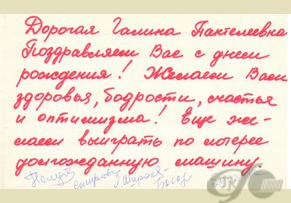 Дорогая Галина Пантелеевна
Поздравляем Вас с днем
рождения! Желаем Вам
здоровья, бодрости, счастья
и оптимизма! Еще же-
лаем выиграть по лотерее
долгожданную машину.